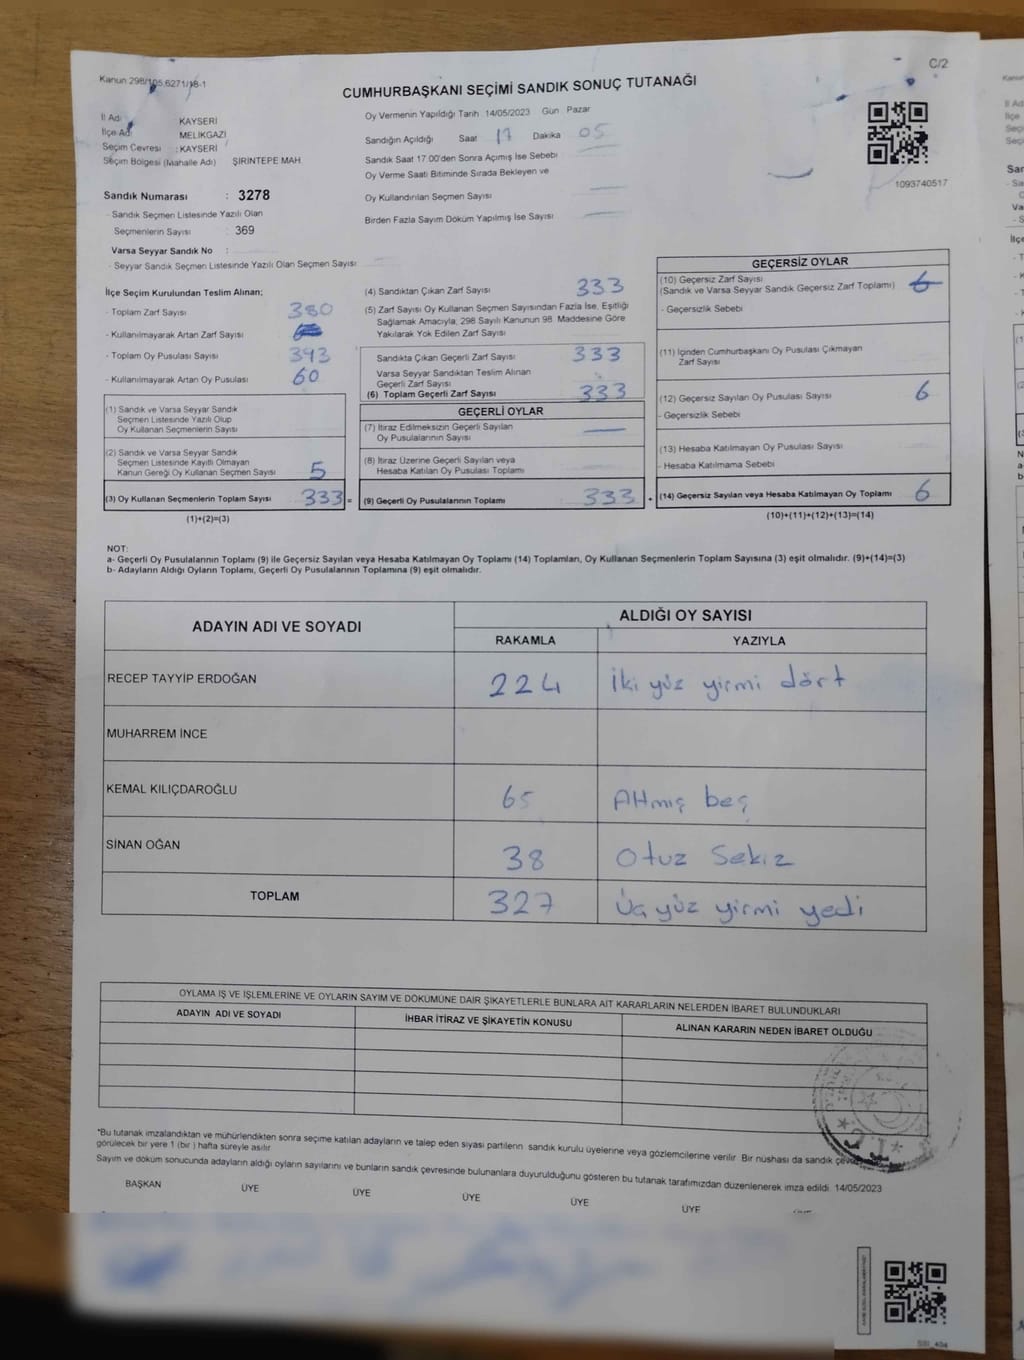 C/2
Kanun 298/105,6271/18-1
CUMHURBAŞKANI SEÇİMİ SANDIK SONUÇ TUTANAĞI
İl Adı KAYSERİ
İlçe Adı MELİKGAZİ
Seçim Çevresi : KAYSERİ
Seçim Bölgesi (Mahalle Adı) ŞİRİNTEPE MAH.
Sandık Numarası : 3278
- Sandık Seçmen Listesinde Yazılı Olan
Seçmenlerin Sayısı : 369
Varsa Seyyar Sandık No :
- Seyyar Sandık Seçmen Listesinde Yazılı Olan Seçmen Sayısı
Oy Vermenin Yapıldığı Tarih 14/05/2023 Gün Pazar
Sandığın Açıldığı Saat 17 Dakika 05
Sandık Saat 17.00'den Sonra Açımış İse Sebebi
Oy Verme Saati Bitiminde Sırada Bekleyen ve
Oy Kullandırılan Seçmen Sayısı
Birden Fazla Sayım Döküm Yapılmış İse Sayısı
1093740517
İlçe Seçim Kurulundan Teslim Alınan;
- Toplam Zarf Sayısı 380
- Kullanılmayarak Artan Zarf Sayısı
- Toplam Oy Pusulası Sayısı 393
- Kullanılmayarak Artan Oy Pusulası 60
(1) Sandık ve Varsa Seyyar Sandık
Seçmen Listesinde Yazılı Olup
Oy Kullanan Seçmenlerin Sayısı
(2) Sandık ve Varsa Seyyar Sandık
Seçmen Listesinde Kayıtlı Olmayan
Kanun Gereği Oy Kullanan Seçmen Sayısı 5
(3) Oy Kullanan Seçmenlerin Toplam Sayısı 333 =
(1)+(2)=(3)
(4) Sandıktan Çıkan Zarf Sayısı 333
(5) Zarf Sayısı Oy Kullanan Seçmen Sayısından Fazla İse, Eşitliği
Sağlamak Amacıyla; 298 Sayılı Kanunun 98 Maddesine Göre
Yakılarak Yok Edilen Zarf Sayısı
Sandıkta Çıkan Geçerli Zarf Sayısı 333
Varsa Seyyar Sandıktan Teslim Alınan
Geçerli Zarf Sayısı
(6) Toplam Geçerli Zarf Sayısı 333
GEÇERLİ OYLAR
(7) İtiraz Edilmeksizin Geçerli Sayılan
Oy Pusulalarının Sayısı
(8) İtiraz Üzerine Geçerli Sayılan veya
Hesaba Katılan Oy Pusulası Toplamı
(9) Geçerli Oy Pusulalarının Toplamı 333 +
GEÇERSİZ OYLAR
(10) Geçersiz Zarf Sayısı
(Sandık ve Varsa Seyyar Sandık Geçersiz Zarf Toplamı) 6
- Geçersizlik Sebebi
(11) İçinden Cumhurbaşkanı Oy Pusulası Çıkmayan
Zarf Sayısı
(12) Geçersiz Sayılan Oy Pusulası Sayısı 6
- Geçersizlik Sebebi
(13) Hesaba Katılmayan Oy Pusulası Sayısı
- Hesaba Katılmama Sebebi
(14) Geçersiz Sayılan veya Hesaba Katılmayan Oy Toplamı 6
(10)+(11)+(12)+(13)=(14)
NOT:
a- Geçerli Oy Pusulalarının Toplamı (9) ile Geçersiz Sayılan veya Hesaba Katılmayan Oy Toplamı (14) Toplamları, Oy Kullanan Seçmenlerin Toplam Sayısına (3) eşit olmalıdır. (9)+(14)=(3)
b- Adayların Aldığı Oyların Toplamı, Geçerli Oy Pusulalarının Toplamına (9) eşit olmalıdır.
ADAYIN ADI VE SOYADI
ALDIĞI OY SAYISI
RAKAMLA YAZIYLA
RECEP TAYYİP ERDOĞAN 224 İki yüz yirmi dört
MUHARREM İNCE
KEMAL KILIÇDAROĞLU 65 Altmış beş
SİNAN OĞAN 38 Otuz Sekiz
TOPLAM 327 Üç yüz yirmi yedi
OYLAMA İŞ VE İŞLEMLERİNE VE OYLARIN SAYIM VE DÖKÜMÜNE DAİR ŞİKAYETLERLE BUNLARA AİT KARARLARIN NELERDEN İBARET BULUNDUKLARI
ADAYIN ADI VE SOYADI İHBAR İTİRAZ VE ŞİKAYETİN KONUSU ALINAN KARARIN NEDEN İBARET OLDUĞU
*Bu tutanak imzalandıktan ve mühürlendikten sonra seçime katılan adayların ve talep eden siyasi partilerin sandık kurulu üyelerine veya gözlemcilerine verilir. Bir nüshası da sandık
görülecek bir yere 1 (bir ) hafta süreyle asılır
Sayım ve döküm sonucunda adayların aldığı oyların sayılarını ve bunların sandık çevresinde bulunanlara duyurulduğunu gösteren bu tutanak tarafımızdan düzenlenerek imza edildi. 14/05/2023
BAŞKAN ÜYE ÜYE ÜYE ÜYE ÜYE
T.C.